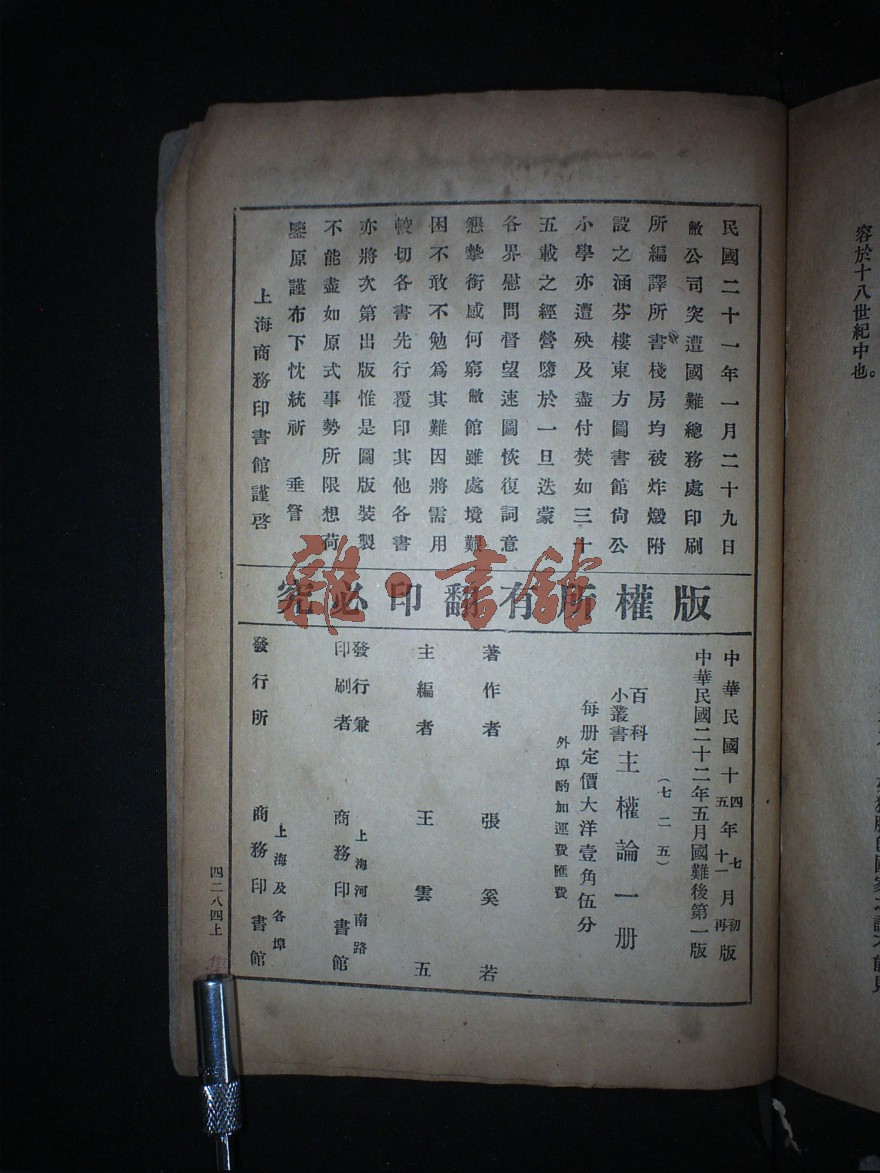 民國二十一年一月二十九日
敝公司突遭國難總務處印刷
所編譯所書棧房均被炸燬附
設之涵芬樓東方圖書館尚公
小學亦遭殃及盡付焚如三十
五載之經營隳於一旦迭蒙
各界慰問督望速圖恢復詞意
懇摯銜感何窮敝館雖處境艱
困不敢不勉爲其難因將需用
較切各書先行覆印其他各書
亦將次第出版惟是圖版裝製
不能盡如原式事勢所限想荷
鑒原謹布下忱統祈 垂詧
上海商務印書館謹啓
版權所有翻印必究
雜·書館
中華民國十四五年七十一月初再版
中華民國二十二年五月國難後第一版
(七二五)
百科小叢書 主權論一册
每册定價大洋壹角伍分
外埠酌加運費匯費
著作者 張奚若
主編者 王雲五
發行兼印刷者 上海河南路 商務印書館
發行所 上海及各埠 商務印書館
四二八四上
容於十八世紀中也。